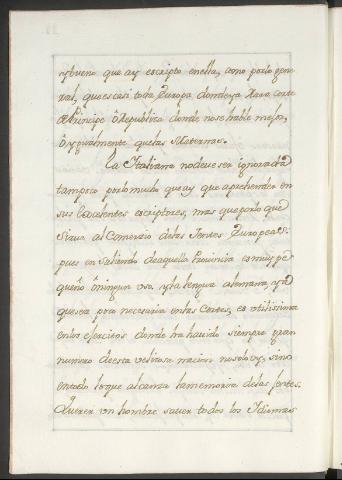 y bueno que ay escripto en ella, como por lo gene-
ral, que es casi toda Europa donde ya Rara corte
de Principe ô Republica donde no se hable mejor,
ô ygualmente que las Maternas.
La Italiana no deve ser ignorada
tampoco por lo mucho que ay que aprehender en
sus Excelentes escriptores, mas que por lo que
Sirva al Comercio de las Jentes Europeas:
pues en Saliendo de aquella Provincia es muy pe-
queño ô ningun uso, y la lengua alemana, ya
que sea poco necesaria en las Cortes, es utilisima
en los exercitos donde ha havido siempre gran
numero de esta velicosa nacion no solo oy, sino
en todo lo que alcanza la memoria de las jentes.
Querer un hombre saver todos los Idiomas